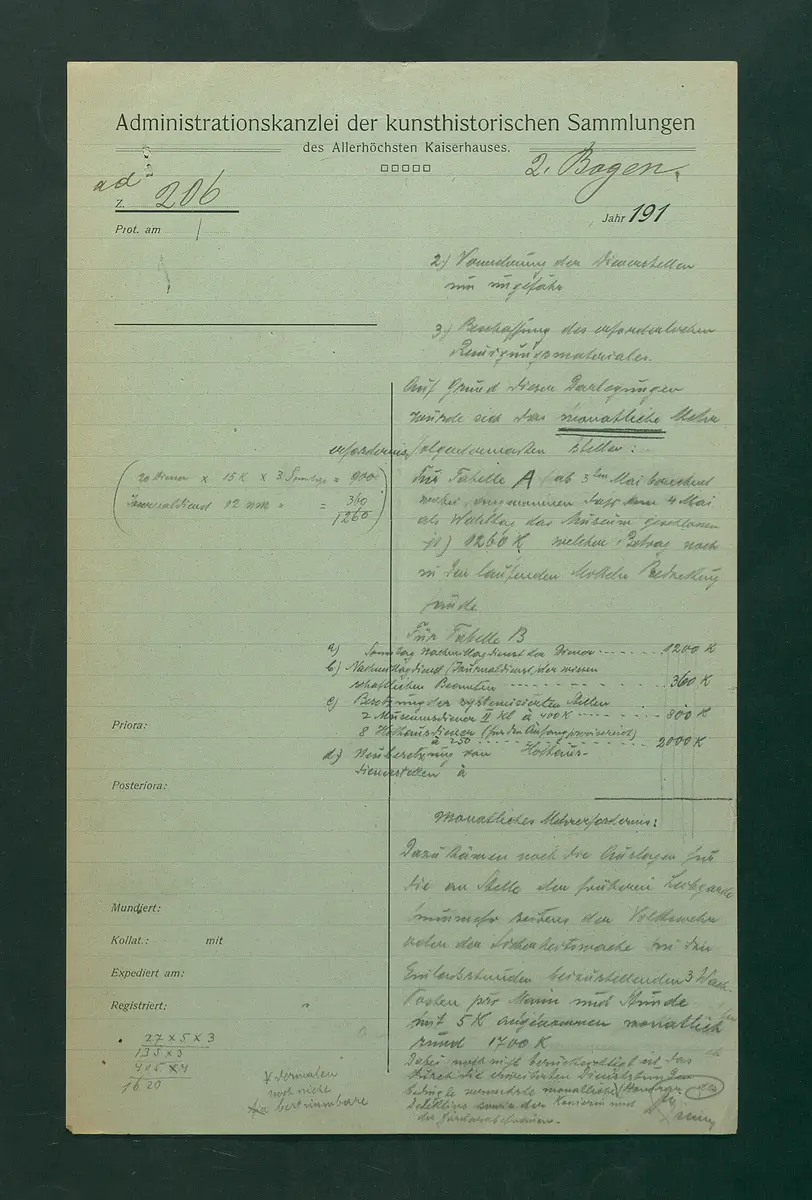 Administrationskanzlei der kunsthistorischen Sammlungen
des Allerhöchsten Kaiserhauses.
2. Bogen.
ad
Z. 206
Jahr 191
Prot. am
2.) Vermehrung der Dienerstellen
um ungefähr
3.) Beschaffung des erforderlichen
Reinigungsmateriales.
Auf Grund dieser Darlegungen
würde sich das monatliche Mehr
erfordernis folgendermassen stellen:
(20 Diener x 15 K x 3 Sonntage = 900
Journaldienst 12 mal = 360
1260)
Für Tabelle A (ab 3ten Mai berechnet
wobei angenommen dass am 4 Mai
als Wahltag das Museum geschlossen
ist) 1260 K welcher Betrag noch
in den laufenden Bedeckung
fände
Für Tabelle B
a) Sonntag Nachmittagdienst der Diener 1200 K
b) Nachmittagdienst (Journaldienst) der wissen
schaftlichen Beamten 360 K
c) Besetzung der systemisierten Stellen
2 Museumsdiener II Kl à 400 K 800 K
8 Hofhausdiener (für den Anfang provisorisch)
à 250 2000 K
d) Neubesetzung von Hofhaus-
dienerstellen à
Priora:
Posteriora:
Monatliches Mehrerfordernis:
Dazu kämen noch die Auslagen für
die an Stelle der früheren Leibgarde
nunmehr seitens der Volkswehr
oder der Sicherheitswache in den
Einlassstunden beizustellenden 3 Wach-
kosten per Mann und Stunde
mit 5 K angenommen monatlich
rund 1700 K
Mundiert:
Kollat.: mit
Expediert am:
Registriert:
27 x 5 x 3
135 x 3
405 x 4
1620
x dermalen
noch nicht
bestimmbare
Dabei noch nicht berücksichtigt ist das
durch die erweiterten Dienststunden
bedingte vermehrte monatliche Honorar der
Detektive sowie der Kassierin und
der Garderobefrauen.